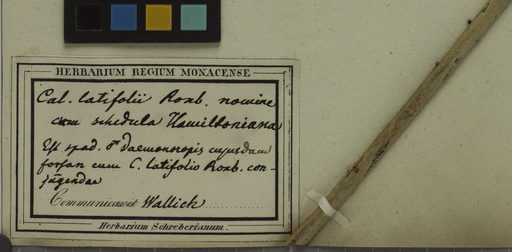 HERBARIUM REGIUM MONACENSE
Cal. latifolii Roxb. nomine
cum schedula Hamiltoniana
Est spad. ♂ daemonoropis cujusdam
forsan cum C. latifolio Roxb. con-
jungendae
Communicavit Wallich
Herbarium Schreberianum.